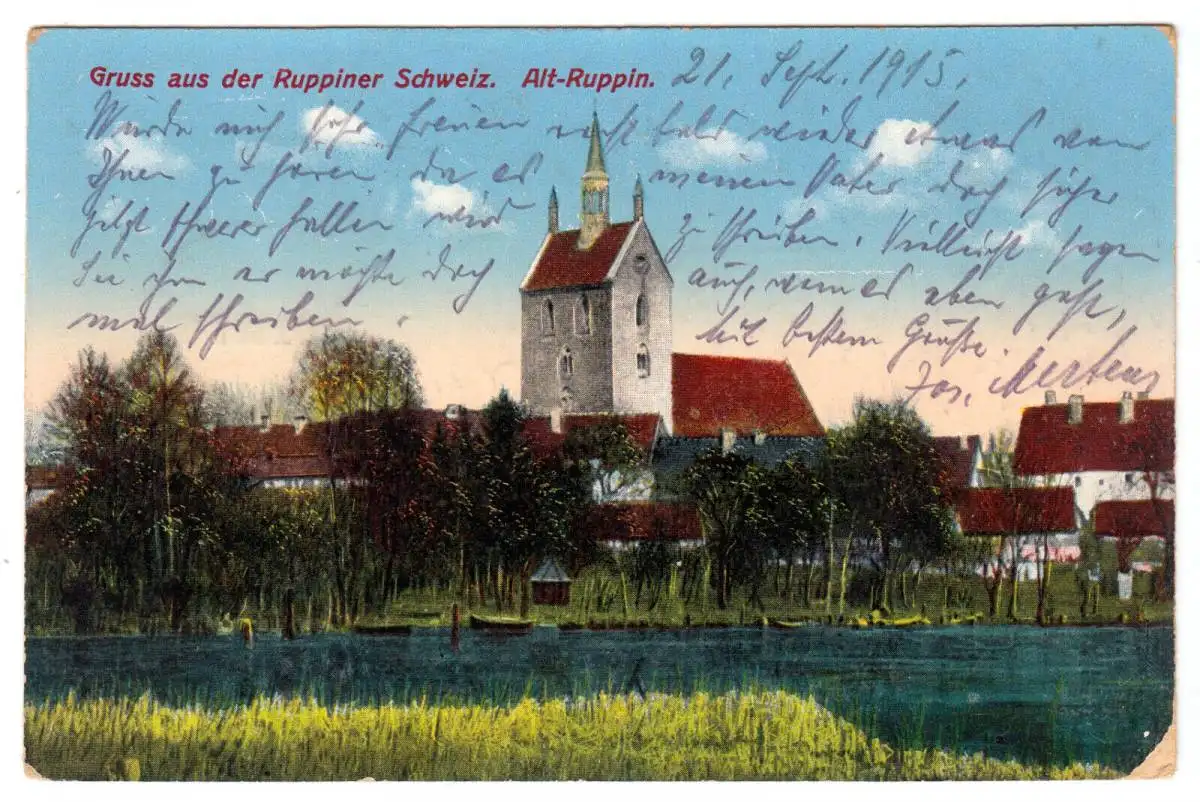 Gruss aus der Ruppiner Schweiz. Alt-Ruppin.
21. Sept. 1915.
Würde mich sehr freuen recht bald wieder etwas von
Ihnen zu hören, da es meinem Vater doch sicher
jetzt schwerer fallen wird zu schreiben. Vielleicht sagen
Sie ihm er möchte doch auch, wenn es eben geht,
mal schreiben.
Mit bestem Grüße.
Jos. Mertens